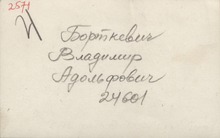 2571
Борткевич
Владимир
Адольфович
24601